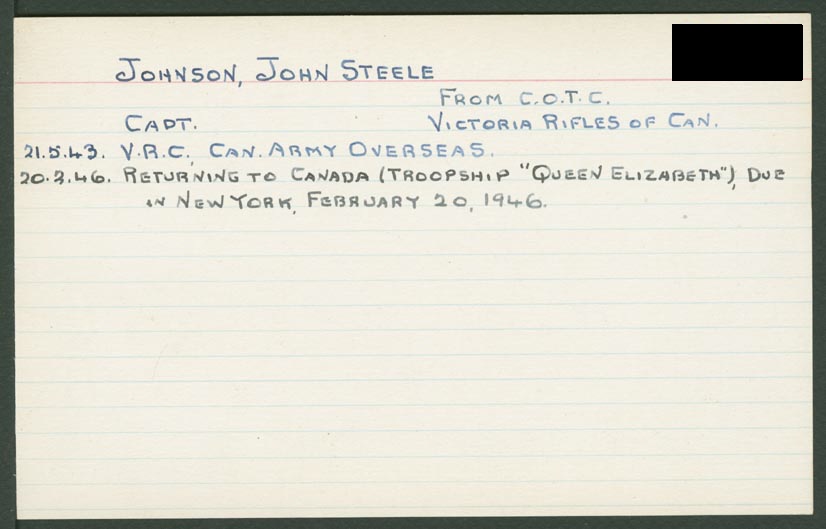 JOHNSON, JOHN STEELE
FROM C.O.T.C.
CAPT. VICTORIA RIFLES OF CAN.
21.5.43. V.R.C., CAN. ARMY OVERSEAS.
20.2.46. RETURNING TO CANADA (TROOPSHIP "QUEEN ELIZABETH"), DUE
IN NEW YORK, FEBRUARY 20, 1946.